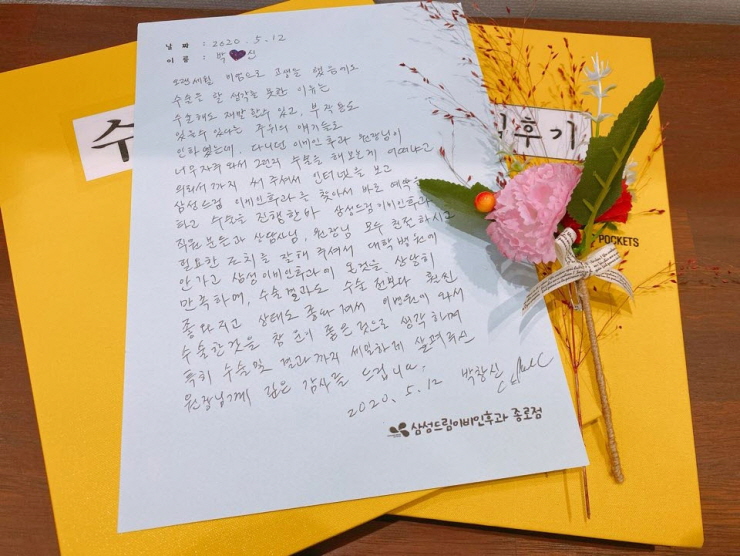 날 짜 : 2020. 5. 12
이 름 : 박♥신
오랜세월 비염으로 고생을 했음에도
수술을 할 생각을 못한 이유는
수술해도 재발할 수 있고, 부작용도
있을수 있다는 주위의 얘기들도
인하였는데, 다니던 이비인후과 원장님이
너무자주 와서 그런지 수술을 해보는게 어떠냐고
의뢰서까지 써 주셔서 인터넷을 보고
삼성드림 이비인후과를 찾아서 바로 예약을
하고 수술을 진행한바 삼성드림이비인후과
직원분들과 상담사님, 원장님 모두 친절하시고
필요한 조치를 잘해 주셔서 대학병원에
안가고 삼성이비인후과에 온것을 상당히
만족하며, 수술결과도 수술 전보다 훨씬
좋아지고 상태도 좋아져서 이병원에 와서
수술한것을 참 운이 좋은 것으로 생각하며
특히 수술및 결과까지 세밀하게 살펴주신
원장님께 깊은 감사를 드립니다.
2020. 5. 12 박창신
삼성드림이비인후과 종로점
수
후기
POCKETS